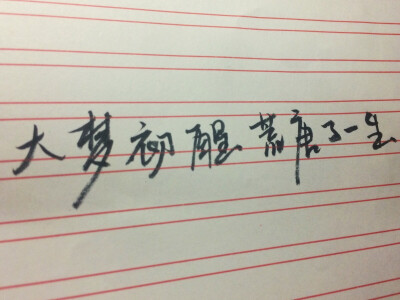 大梦初醒荒唐了一生